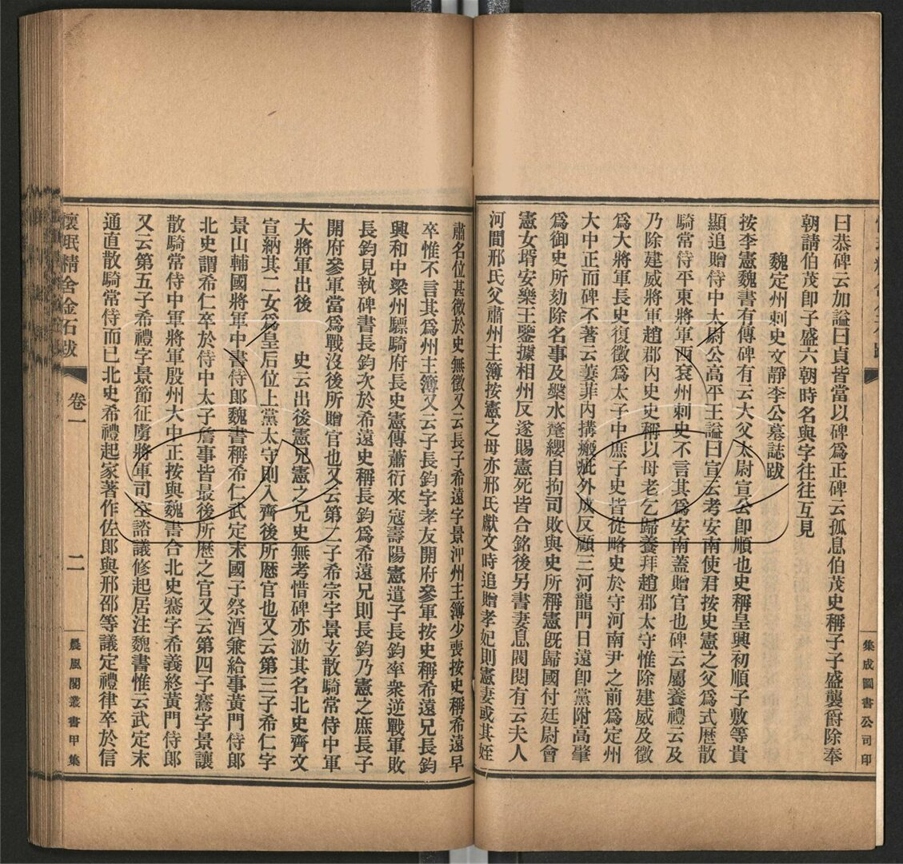 曰恭碑云加謚曰貞皆當以碑爲正碑云孤息伯茂史稱子子盛襲爵除奉
朝請伯茂卽子盛六朝時名與字往往互見
魏定州刺史文靜李公墓誌跋
按李憲魏書有傳碑有云大父太尉宣公卽順也史稱皇興初順子敷等貴
顯追贈侍中太尉公高平王謚曰宣云考安南使君按史憲之父爲式歷散
騎常侍平東將軍西兗州刺史不言其爲安南蓋贈官也碑云屬養禮云及
乃除建威將軍趙郡內史史稱以母老乞歸養拜趙郡太守惟除建威及徵
爲大將軍長史復徵爲太子中庶子史皆從略史於守河南尹之前爲定州
大中正而碑不著云萋菲內搆瘢疵外成反顧三河龍門日遠卽黨附高肇
爲御史所劾除名事及槃水氂纓自拘司敗與史所稱憲旣歸國付廷尉會
憲女壻安樂王鑒據相州反遂賜憲死皆合銘後另書妻息閥閱有云夫人
河間邢氏父肅州主簿按憲之母亦邢氏獻文時追贈孝妃則憲妻或其姪
肅名位甚微於史無徵又云長子希遠字景沖州主簿少喪按史稱希遠早
卒惟不言其爲州主簿又云子長鈞字孝友開府參軍按史稱希遠兄長鈞
興和中梁州驃騎府長史憲傳蕭衍來寇壽陽憲遣子長鈞率衆逆戰軍敗
長鈞見執碑書長鈞次於希遠史稱長鈞爲希遠兄則長鈞乃憲之庶長子
開府參軍當爲戰沒後所贈官也又云第二子希宗字景玄散騎常侍中軍
大將軍出後　史云出後憲兄憲之兄史無考惜碑亦泐其名北史齊文
宣納其二女爲皇后位上黨太守則入齊後所歷官也又云第三子希仁字
景山輔國將軍中書侍郎魏書稱希仁武定末國子祭酒兼給事黃門侍郎
北史謂希仁卒於侍中太子詹事皆最後所歷之官又云第四子騫字景讓
散騎常侍中軍將軍殷州大中正按與魏書合北史騫字希義終黃門侍郎
又云第五子希禮字景節征虜將軍司空諮議修起居注魏書惟云武定末
通直散騎常侍而已北史希禮起家著作佐郎與邢邵等議定禮律卒於信
懷岷精舍金石跋
卷一
二
晨風閣叢書甲集
集成圖書公司印